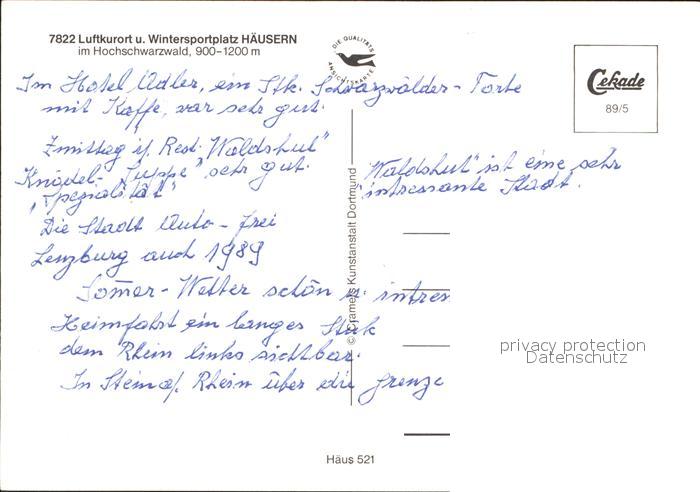 7822 Luftkurort u. Wintersportplatz HÄUSERN
im Hochschwarzwald, 900–1200 m
DIE QUALITÄTS
ANSICHTSKARTE
Cekade
89/5
Im Hotel Adler, ein Stk. Schwarzwälder-Torte
mit Kaffe, war sehr gut.
Zmittag i/ Rest. Waldshut"
Knödel-Suppe" sehr gut.
„Spezialität"
Die Stadt Auto-frei
Lenzburg auch 1989
Waldshut" ist eine sehr
intressante Stadt.
Sommer-Wetter schön u. intres
Heimfahrt ein langes Stük
dem Rhein links sichtbar.
In Stein a/. Rhein über die Grenze
© Cramers Kunstanstalt Dortmund
privacy protection
Datenschutz
Häus 521